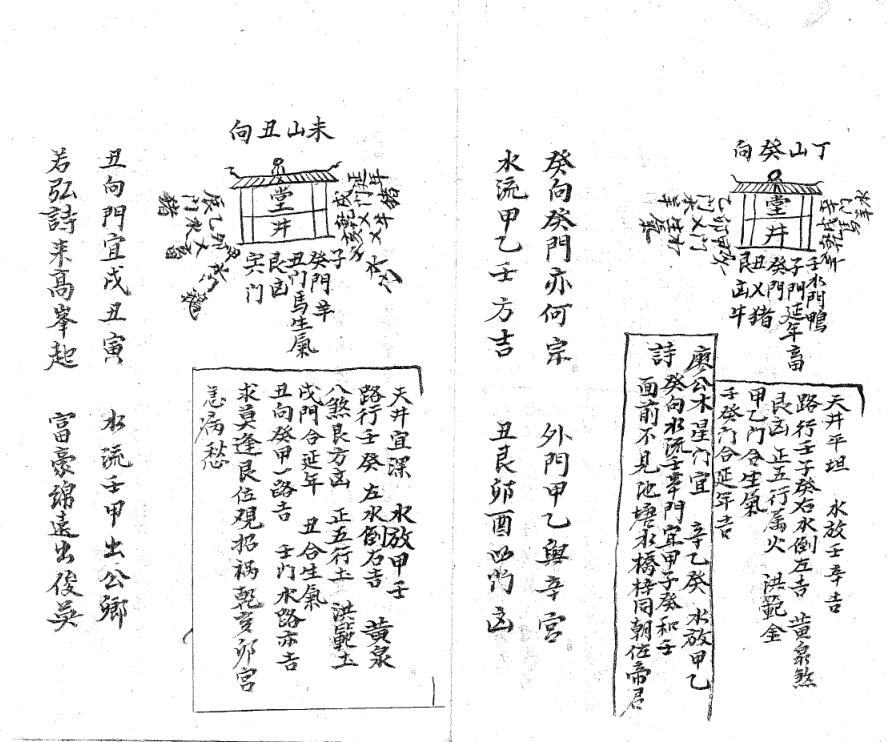 丁山癸向
堂
井
壬水門鴨
子門延年畜
癸門
丑乂猪
艮凶牛
天井平坦 水放壬辛吉
路行壬子癸右水倒左吉 黃泉煞
艮凶 正五行属火 洪範金
甲乙門合生氣
子癸門合延年吉
廖公木星门宜 辛乙癸 水放甲乙
詩 癸向水流壬辛門宜甲子癸和壬
面前不見池塘水橋梓同朝佐帝君
癸向癸門亦何宗 外門甲乙與辛宮
水流甲乙壬方吉 丑艮卯酉四門凶
未山丑向
堂
井
子
癸門辛
丑门馬生氣
艮凶
寅门
天井宜深 水放甲壬
路行壬癸 左水倒右吉 黃泉
八煞艮方凶 正五行土 洪範土
戌門合延年 丑合生氣
丑向癸甲一路吉 壬门水路亦吉
求莫逢艮位覌招禍乾亥卯宮
惹病愁
丑向門宜戌丑寅 水流壬甲出公鄉
若弘詩来高峯起 富豪綿遠出俊英